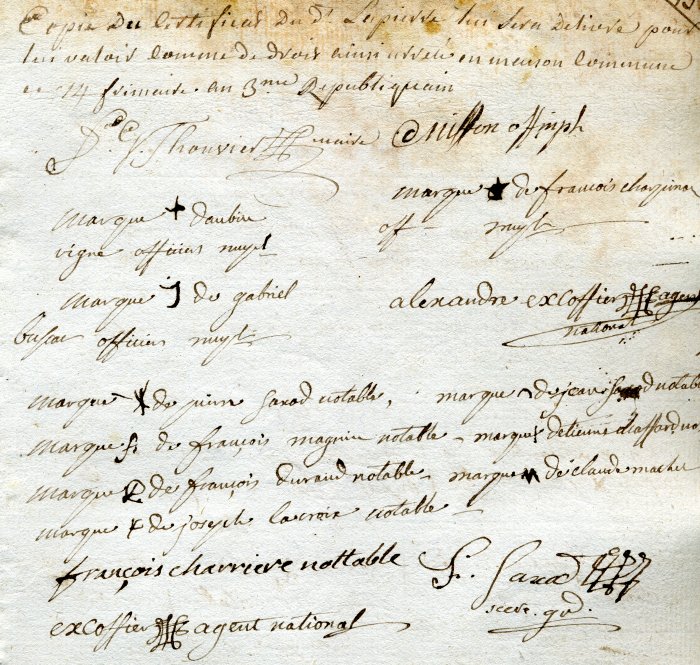 Copie Du Certificat Du Dt. Lepierre lui sera Delivré pour
lui valoir Comme de droit ainsi arreté en maison Commune
ce 14 frimaire an 3me Republiquain
Thouvier maire
marque de françois
off muyl
marque + daubin
vigne officiers muyl
marque de gabriel
officiers muyl
alexandre excoffier agent
national
marque de pierre Saxod notable, marque de jean Saxod notable
marque de françois magnin notable – marque detienne
marque de françois durand notable – marque de claude machet
marque de joseph lacroix notable –
françois charriere nottable
fr. Saxod
secre. gd.
excoffier agent national